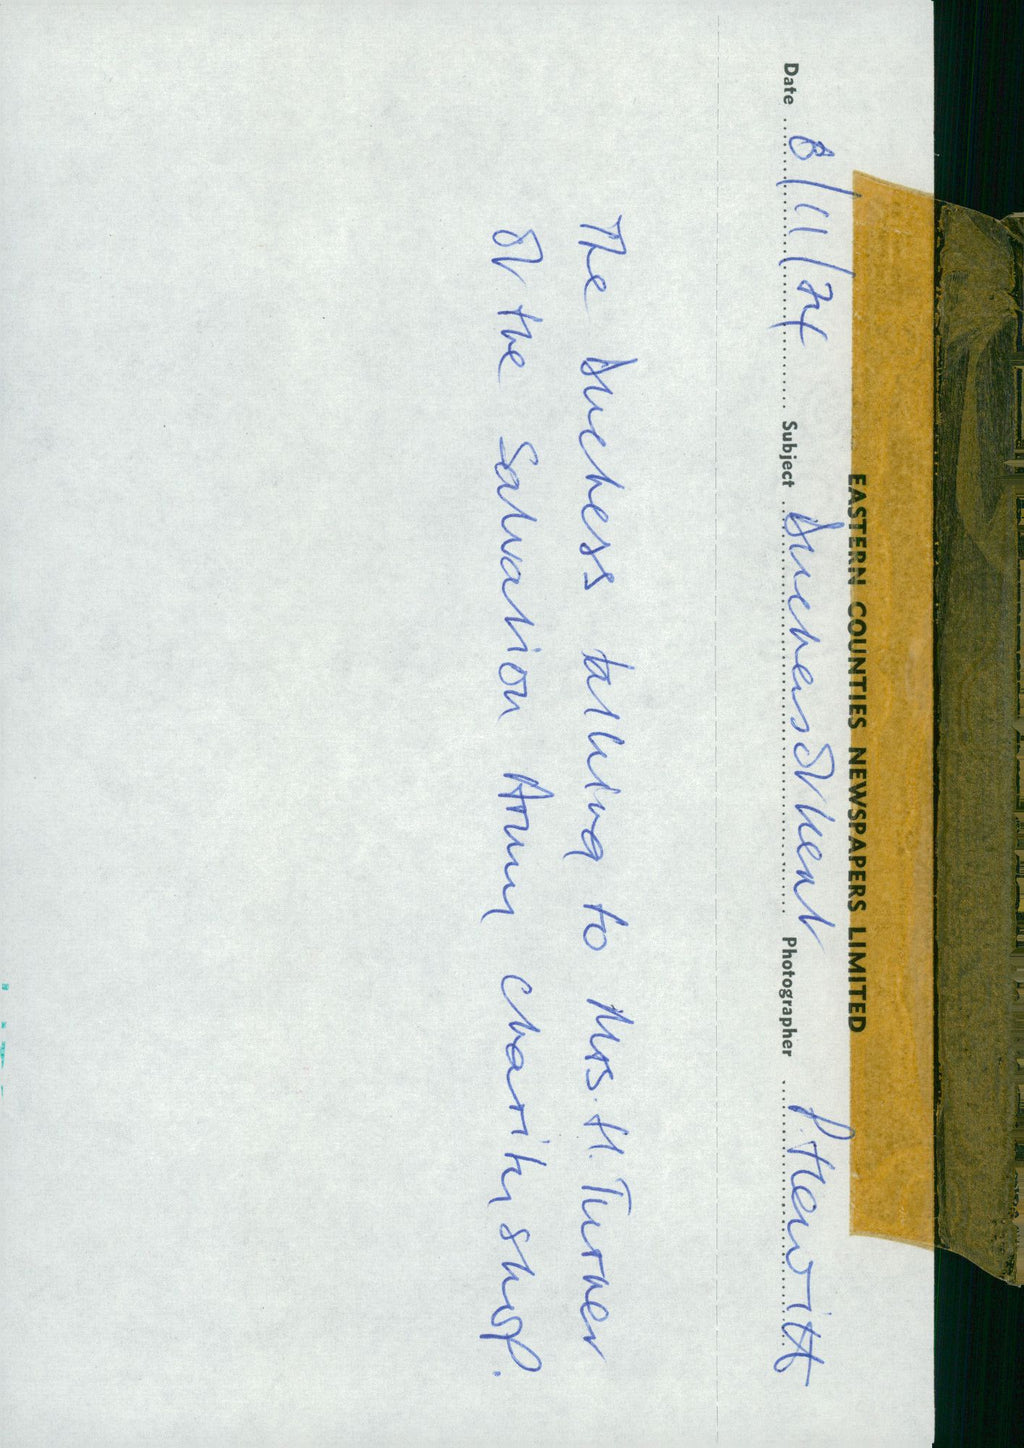 EASTERN COUNTIES NEWSPAPERS LIMITED
Date 8/11/74 Subject Duchess of Kent Photographer P. Hewitt
The Duchess talking to Mrs. H. Turner
of the Salvation Army charity shop.